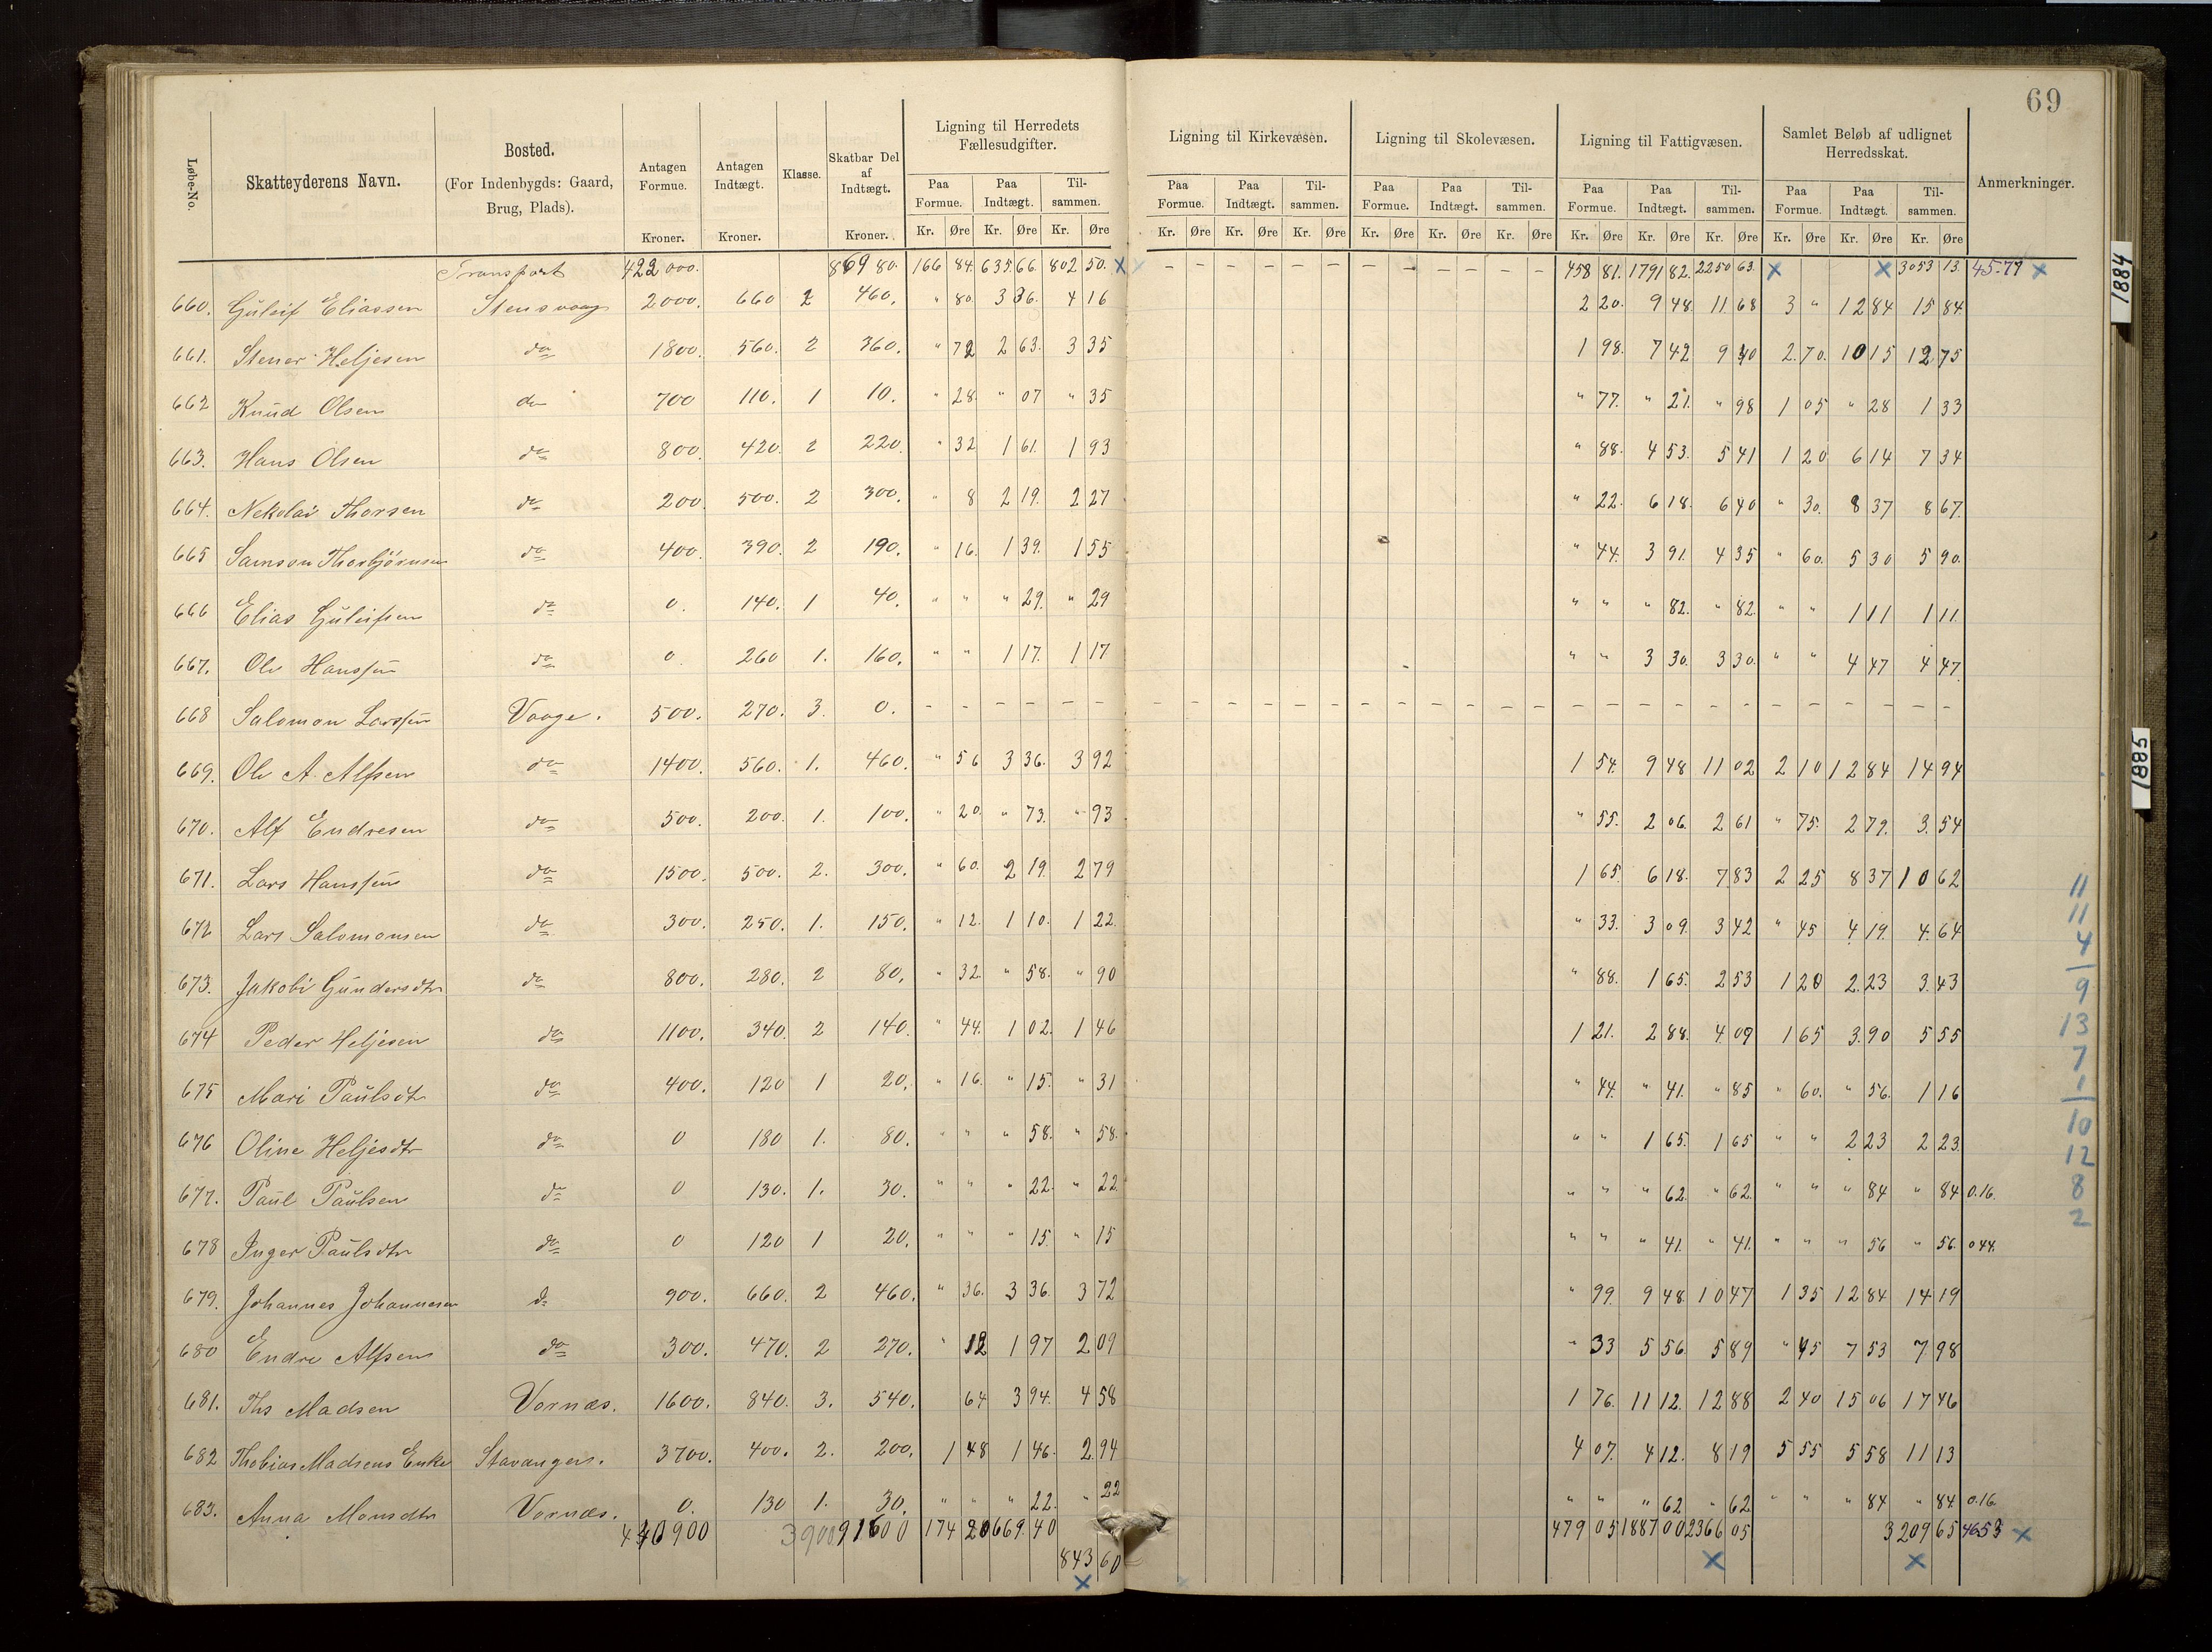 69
Løbe-No. Skatteyderens Navn. Bosted. (For Indenbygds: Gaard, Brug, Plads). Antagen Formue. Kroner. Antagen Indtægt. Kroner. Klasse. Skatbar Del af Indtægt. Kroner. Ligning til Herredets Fællesudgifter. Ligning til Kirkevæsen. Ligning til Skolevæsen. Ligning til Fattigvæsen. Samlet Beløb af udlignet Herredsskat. Anmerkninger.
Paa Formue. Paa Indtægt. Til-sammen. Paa Formue. Paa Indtægt. Til-sammen. Paa Formue. Paa Indtægt. Til-sammen. Paa Formue. Paa Indtægt. Til-sammen. Paa Formue. Paa Indtægt. Til-sammen.
Kr. Øre Kr. Øre Kr. Øre Kr. Øre Kr. Øre Kr. Øre Kr. Øre Kr. Øre Kr. Øre Kr. Øre Kr. Øre Kr. Øre Kr. Øre Kr. Øre Kr. Øre
Transport 422000. 86980. 166 84. 635 66. 802 50. x – – – – – – – – – – – – 458 81. 1791 82. 2250 63. x x 3053 13. 45.77 x
660. Guleif Eliassen Stensvaag 2000. 660 2 460. " 80. 3 36. 4 16 2 20. 9 48. 11 68 3 " 12 84 15 84
661. Stener Heljesen do 1800. 560. 2 360. " 72 2 63. 3 35 1 98. 7 42 9 40 2. 70. 10 15 12 75
662 Knud Olsen do 700 110. 1 10. " 28. " 07 " 35 " 77. " 21. " 98 1 05 " 28 1 33
663. Hans Olsen do 800. 420. 2 220. " 32 1 61. 1 93 " 88. 4 53. 5 41 1 20 6 14 7 34
664. Nekolai Thorsen do 200. 500. 2 300. " 8 2 19. 2 27 " 22. 6 18. 6 40 " 30. 8 37 8 67.
665 Samson Thorbjörnsen do 400. 390. 2 190. " 16. 1 39. 1 55 " 44. 3 91. 4 35 " 60. 5 30 5 90.
666 Elias Guleifsen do 0. 140. 1 40. " " " 29. " 29 " " " 82. " 82. " " 1 11 1 11.
667. Ole Hanssen do 0. 260 1. 160. " " 1 17. 1 17 " " 3 30. 3 30. " " 4 47 4 47.
668 Salomon Larssen Vaage. 500. 270. 3. 0. – – – – – – – – – – – – – – – – – – – – – – – – – – – – – –
669. Ole A. Alfsen do 1400. 560. 1. 460. " 56 3 36. 3 92 1 54. 9 48 11 02 2 10 12 84 14 94
670. Alf Endresen do 500. 200. 1. 100. " 20. " 73. " 93 " 55. 2 06. 2 61 " 75. 2 79. 3. 54
671. Lars Hanssen do 1500. 500. 2. 300. " 60. 2 19. 2 79 1 65. 6 18. 7 83 2 25 8 37 10 62
672 Lars Salomonsen do 300. 250. 1. 150. " 12. 1 10. 1 22. " 33. 3 09. 3 42 " 45 4 19. 4. 64
673. Jakobi Gundersdtr do 800. 280. 2 80. " 32 " 58. " 90 " 88. 1 65. 2 53 1 20 2. 23 3. 43
674 Peder Heljesen do 1100. 340. 2 140. " 44. 1 02. 1 46 1 21. 2 88. 4 09 1 65 3. 90 5 55
675 Mari Paulsdtr do 400. 120 1 20. " 16. " 15. " 31 " 44. " 41. " 85 " 60. " 56. 1 16
676 Oline Heljesdtr do 0 180 1. 80. " " " 58. " 58. " " 1 65. 1 65 " " 2 23 2 23.
677. Paul Paulsen do 0 130. 1. 30. " " " 22. " 22. " " " 62. " 62. " " " 84 " 84 0.16.
678 Inger Paulsdtr do 0 120 1 20. " " " 15. " 15 " " " 41. " 41. " " " 56 " 56. 0 44.
679. Johannes Johannesen do 900. 660. 2 460. " 36. 3 36. 3 72 " 99. 9 48. 10 47 1 35 12 84 14 19
680 Endre Alfsen do 300. 470. 2 270. " 12 1 97 2 09 " 33 5 56. 5 89 " 45 7 53 7 98
681. Ths Madsen Vornæs. 1600. 840. 3. 540. 64 3 94. 4 58 1 76. 11 12. 12 88 2 40 15 06 17 46
682 Thobias Madsens Enke Stavanger. 3700. 400. 2. 200. 1 48 1 46. 2. 94 4 07. 4 12. 8 19 5 55 5 58 11 13
683. Anna Monsdtr Vornæs. 0. 130 1. 30. " " " 22. " 22 " " " 62 " 62 " " " 84 " 84 0.16.
440900 3900 91600 174 20 669. 40 479 05 1887 00 2366 05 3209 65 4653 x
843 60 x x
x
11
11
4
9
13
7
1
10
12
8
2
1884
1885